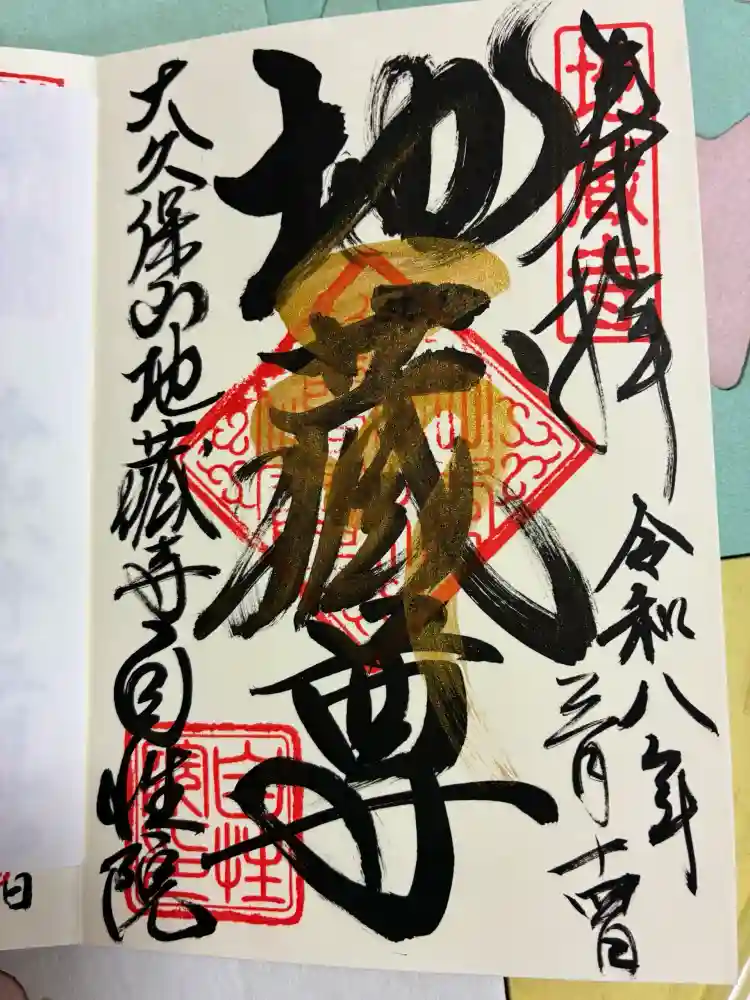 奉拝
令和八年
三月十四日
地蔵尊
地蔵尊
大久保山地蔵寺自性院
自性
院印
日